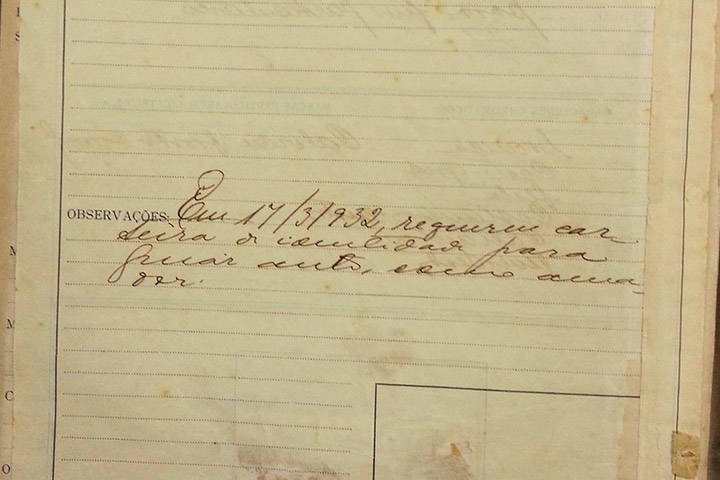 OBSERVAÇÕES: Em 17/3/932, requereu car
teira de identidade para
guiar auto, como ama-
dor.